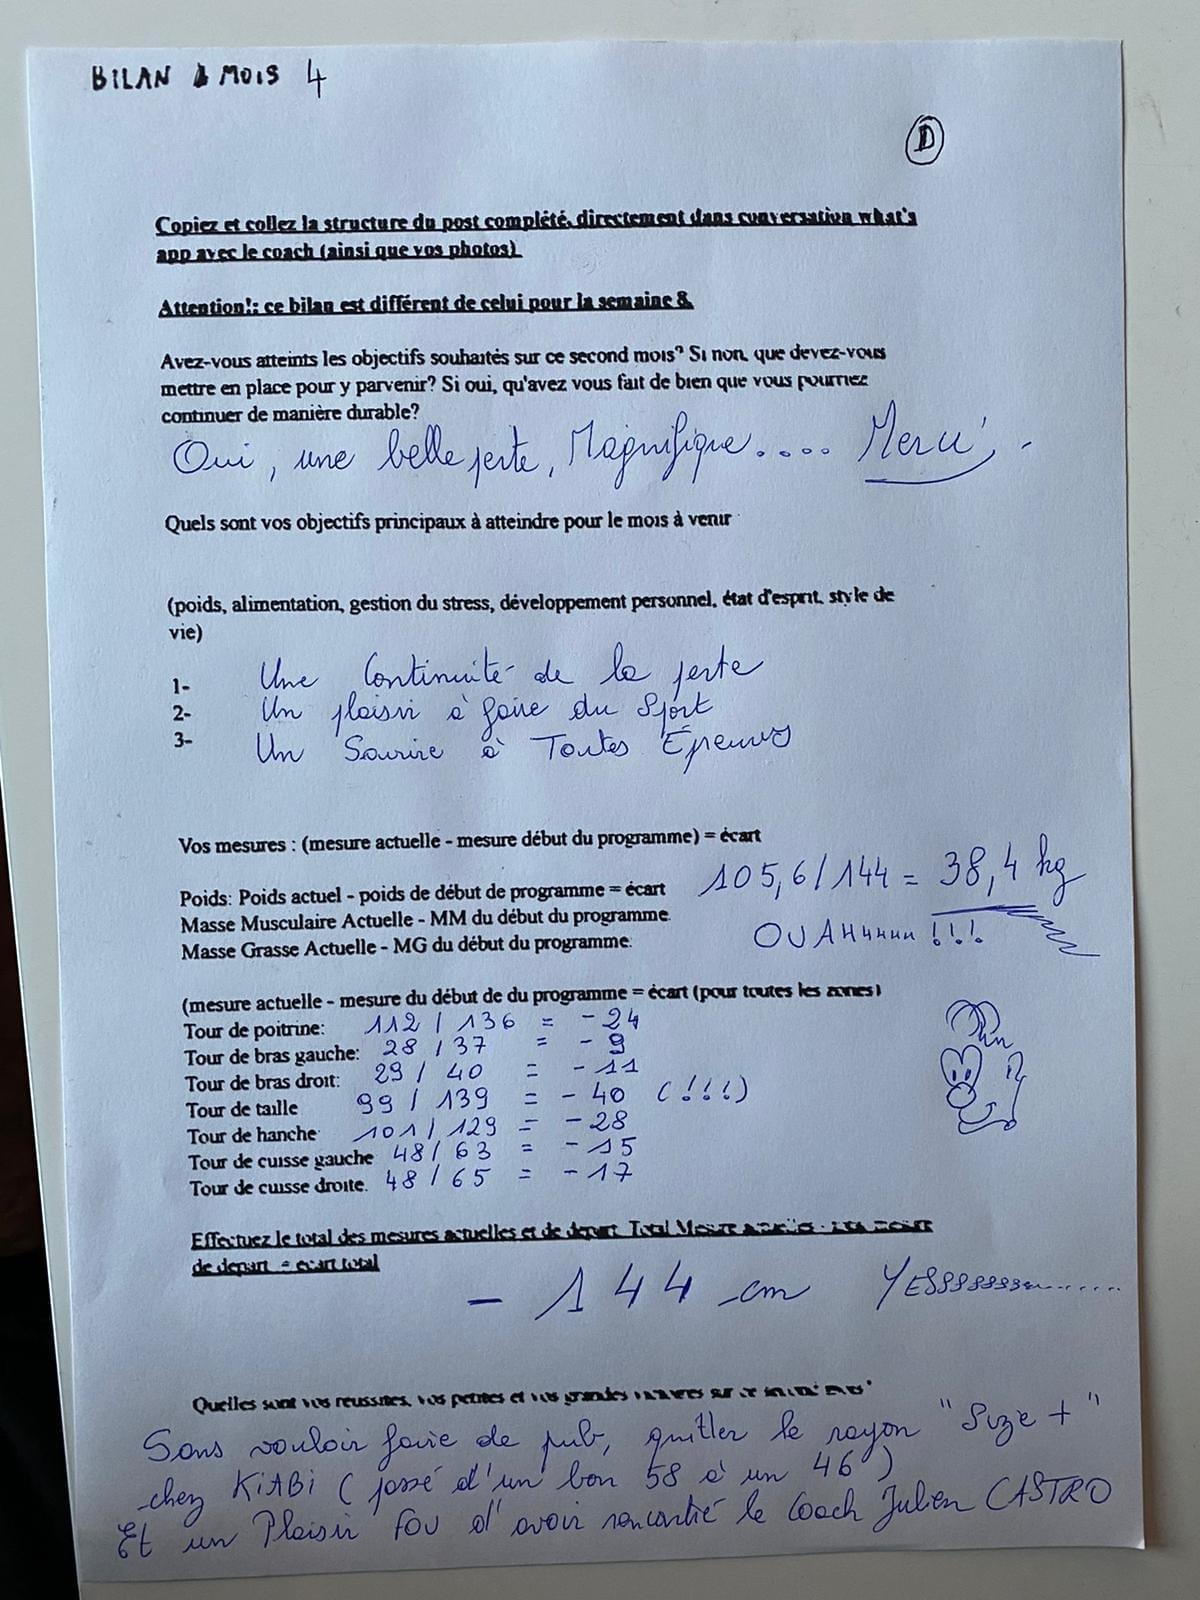 BILAN MOIS 4
D
Copiez et collez la structure du post complété, directement dans conversation what's
app avec le coach (ainsi que vos photos)
Attention!: ce bilan est différent de celui pour la semaine &
Avez-vous atteints les objectifs souhaités sur ce second mois? Si non, que devez-vous
mettre en place pour y parvenir? Si oui, qu'avez vous fait de bien que vous pourriez
continuer de manière durable?
Oui, une belle perte, Magnifique.... Merci
Quels sont vos objectifs principaux à atteindre pour le mois à venir
(poids, alimentation, gestion du stress, développement personnel, état d'esprit, style de
vie)
1- Une Continuité de la perte
2- Un plaisir à faire du Sport
3- Un Sourire à Toutes Épreuves
Vos mesures : (mesure actuelle - mesure début du programme) = écart
Poids: Poids actuel - poids de début de programme = écart 105,6 / 144 = 38,4 kg
Masse Musculaire Actuelle - MM du début du programme
Masse Grasse Actuelle - MG du début du programme: OUAHHHHH !!!
(mesure actuelle - mesure du début de du programme = écart (pour toutes les zones)
Tour de poitrine: 112 / 136 = - 24
Tour de bras gauche: 28 / 37 = - 9
Tour de bras droit: 29 / 40 = - 11
Tour de taille 99 / 139 = - 40 (!!!)
Tour de hanche 101 / 129 = - 28
Tour de cuisse gauche 48 / 63 = - 15
Tour de cuisse droite. 48 / 65 = - 17
Effectuez le total des mesures actuelles et de depart. Total Mesure
de depart = ecart total
- 144 cm YESSSSSSSS
Quelles sont vos reussites, vos petites et vos grandes sur ce
Sans vouloir faire de pub, quitter le rayon "Size +"
chez KIABI (passé d'un bon 58 à un 46)
Et un Plaisir fou d'avoir rencontré le Coach Julien CASTRO